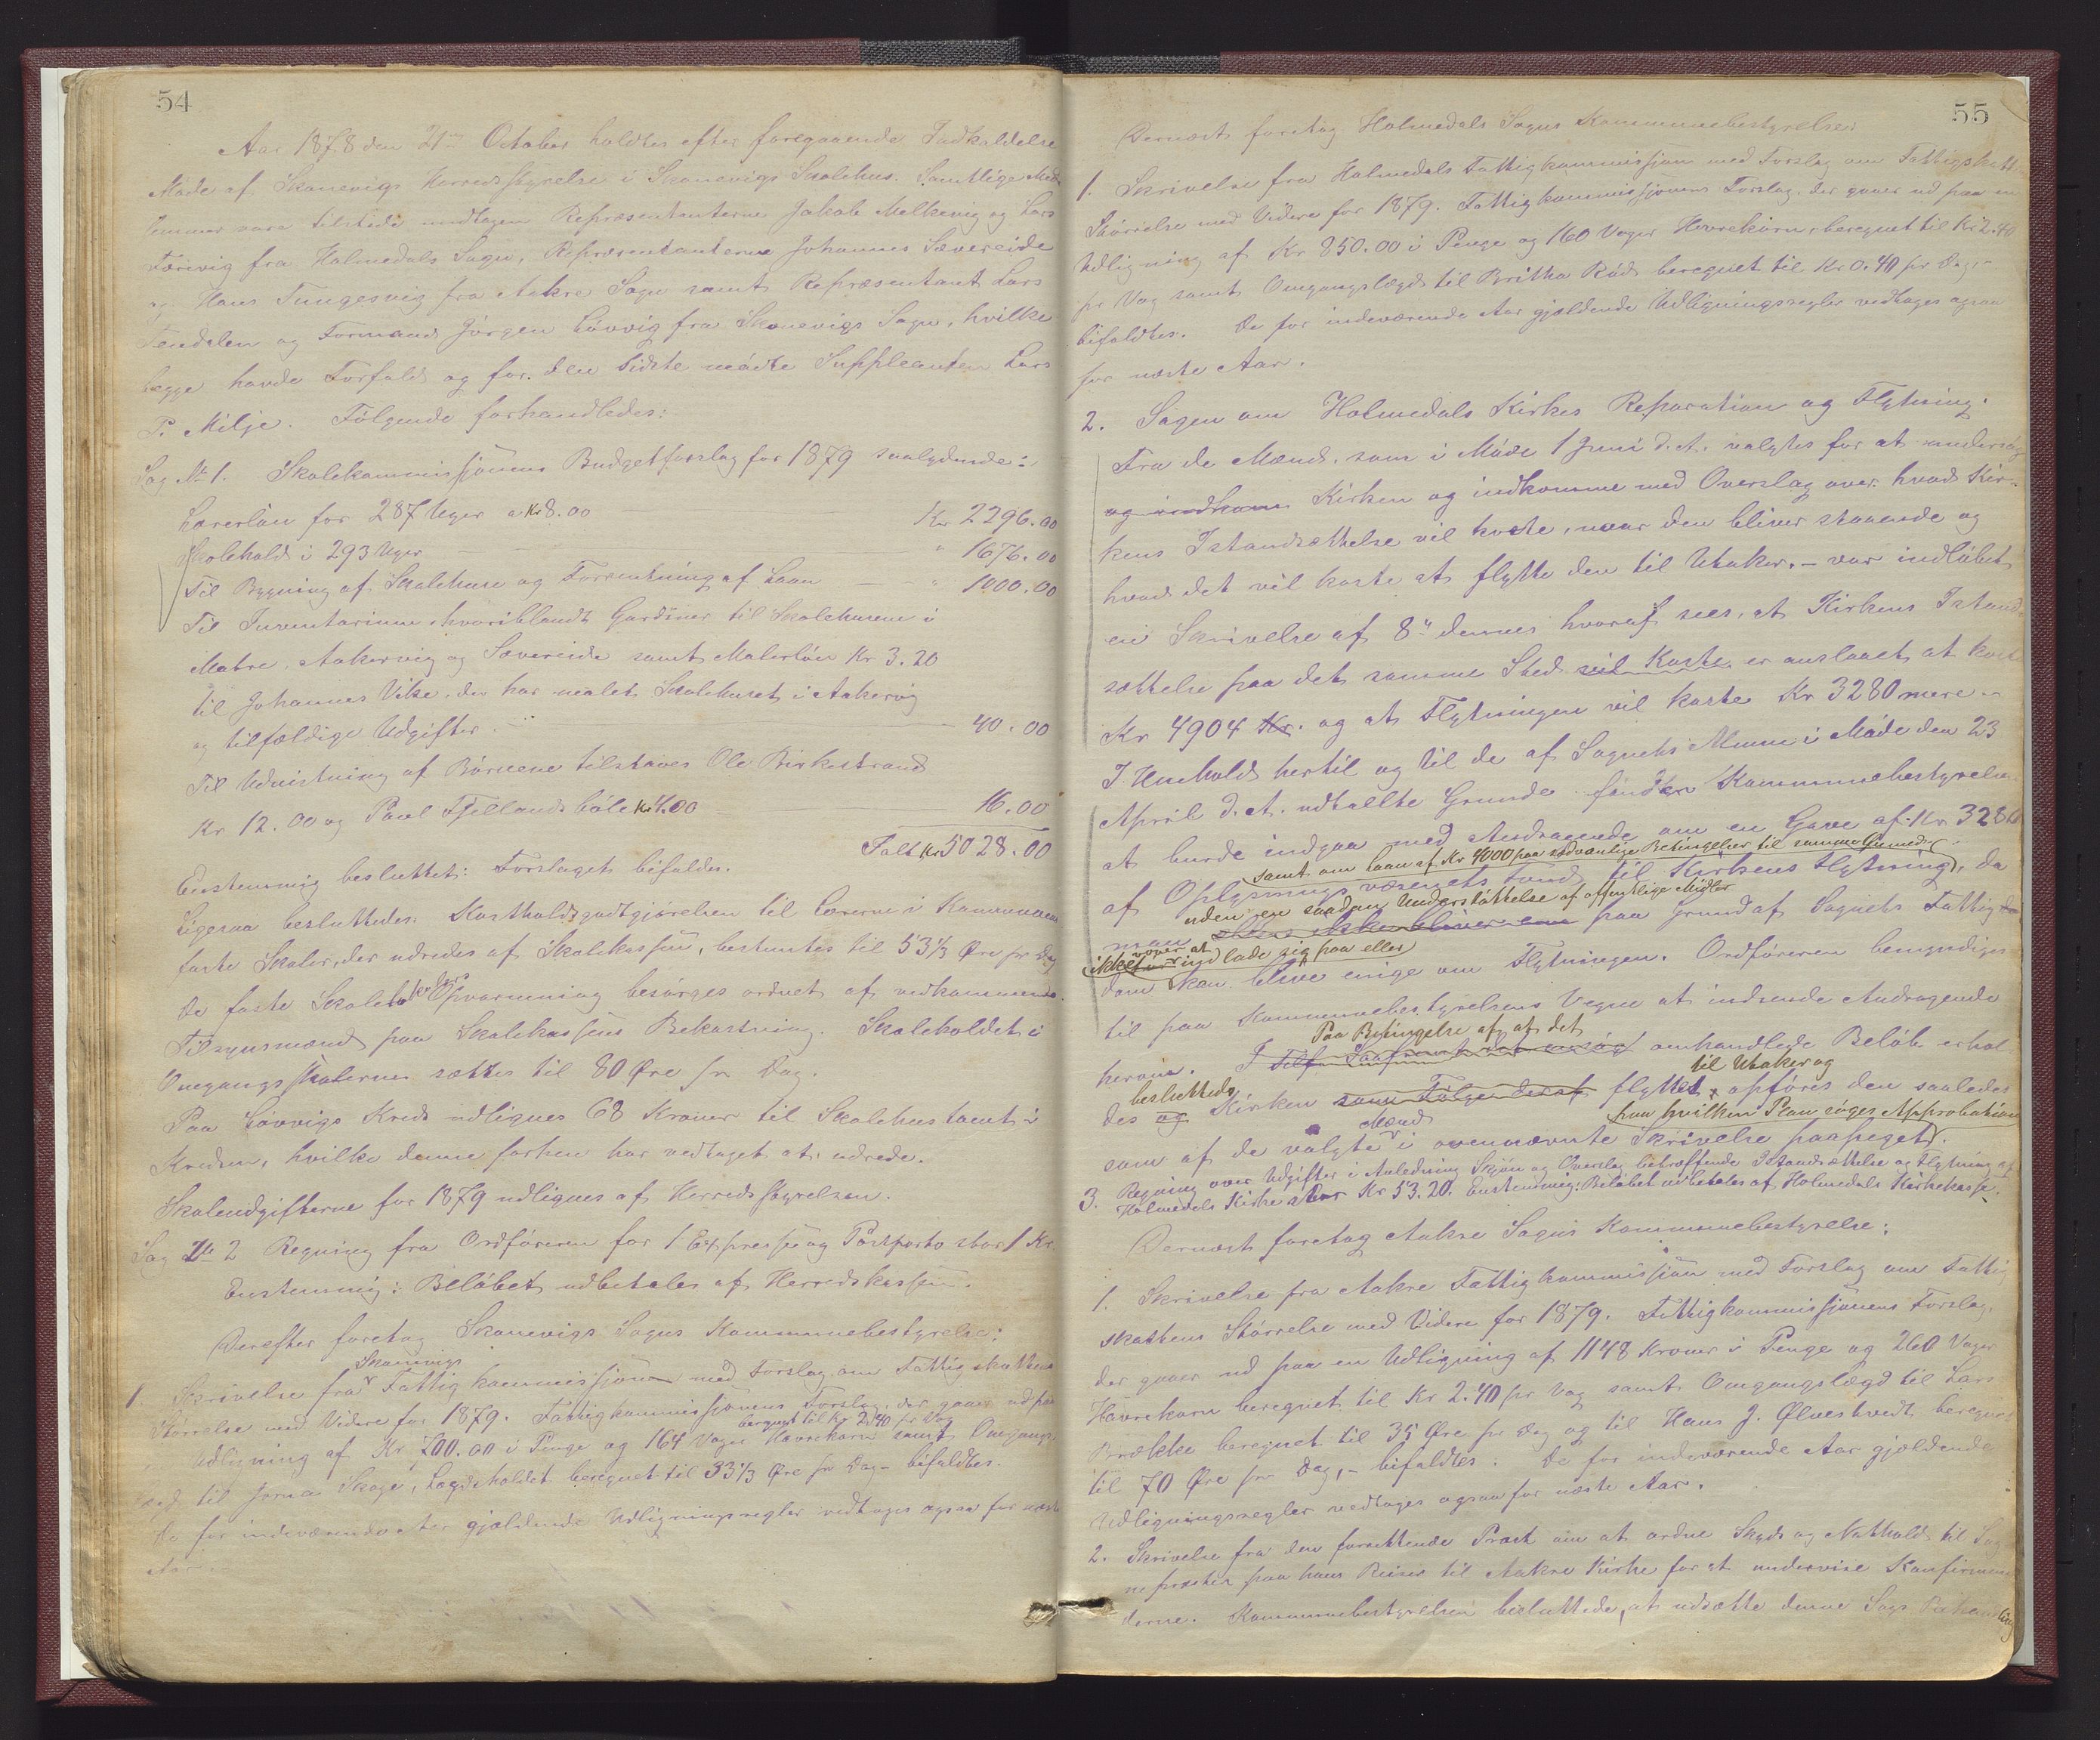 54
Aar 1878 den 21de October holdtes efter foregaaende Indkaldelse
Møde af Skonevigs Herredsstyrelse i Skonevigs Skolehus. Samtlige Med-
lemmer vare tilstede undtagen Repræsentanterne Jakob Melkevig og Lars
fra Holmedals Sogn, Repræsentanterne Johannes Sævereide
og Hans Tungesvig fra Aakre Sogn samt Repræsentant Lars
og Formand Jørgen Løvvig fra Skonevigs Sogn, hvilke
begge havde Forfald og for den sidste mødte Suppleanten Lars
P. Milje. Følgende forhandledes:
Sag No 1. Skolekommissjonens Budgetforslag for 1879 saalydende:
Lærerløn for 287 Uger a Kr 8.00 Kr 2296.00
Skolehold i 293 Uger " 1676.00
Til Bygning af Skolehuse og Forrentning af Laan " 1000.00
Til Inventarium, hvoriblandt Gardiner til Skolehusene i
Matre, Aakervig og Sævereide samt Malerløn Kr 3.20
til Johannes Vike, der har malet Skolehuset i Aakervig
og tilfældige Udgifter 40.00
Til Udrustning af Børnene tilstaaes Ole Birkestrand
Kr 12.00 og Paul Fjellandsbøle Kr 4.00 16.00
Ialt Kr 5028.00
Enstemmig besluttet: Forslaget bifaldes.
Ligesaa besluttedes: Kostholdsgodtgjørelsen til Lærerne i Kommunens
faste Skoler, der udredes af Skolekassen, bestemtes til 53 1/3 Øre pr Dag
De faste Skolelokalers Opvarmning besørges ordnet af vedkommende
Tilsynsmænd paa Skolekassens Bekostning. Skoleholdet i
Omgangsskolerne sættes til 80 Øre pr Dag.
Paa Løvvigs Kreds udlignes 68 Kroner til Skolehustomt i
Kredsen, hvilke denne forhen har vedtaget at udrede.
Skoleudgifterne for 1879 udlignes af Herredsstyrelsen.
Sag No 2 Regning fra Ordføreren for 1 Expresse og Postporto stor 1 Kr
Enstemmig: Beløbet udbetales af Herredskassen.
Derefter foretog Skonevigs Sogns Kommunebestyrelse:
Skonevigs
1. Skrivelse fra Fattigkommissjonen med Forslag om Fattigskattens
Størrelse med Videre for 1879. Fattigkommissjonens Forslag, der gaaer ud paa
beregnet til Kr 2.40 pr Vog
Udligning af Kr 700.00 i Penge og 164 Voger Havrekorn samt Omgangs-
lægd til Jorna Skoge, Lægdsholdet beregnet til 33 1/3 Øre pr Dag - bifaldtes.
De for indeværende Aar gjældende Udligningsregler vedtages ogsaa for næste
Aar.
55
Dernæst foretog Holmedals Sogns Kommunebestyrelse
1. Skrivelse fra Holmedals Fattigkommissjon med Forslag om Fattigskattens
Størrelse med Videre for 1879. Fattigkommissjonens Forslag, der gaaer ud paa en
Udligning af Kr 850.00 i Penge og 160 Voger Havrekorn, beregnet til Kr 2.40
pr Vog samt Omgangslægd til Britha Rød beregnet til Kr 0.40 pr Dag -
bifaldtes. De for indeværende Aar gjældende Udligningsregler vedtages ogsaa
for næste Aar.
2. Sagen om Holmedals Kirkes Reparation og Flytning.
Fra de Mænd, som i Møde 1 Juni d. A. valgtes for at undersøge
og indkom Kirken og indkomme med Overslag over hvad Kir-
kens Istandsættelse vil koste, naar den bliver staaende og
hvad det vil koste at flytte den til Utaker, - var indløbet
en Skrivelse af 8de dennes hvoraf sees, at Kirkens Istand-
sættelse paa det samme Sted vil Koste er anslaaet at koste
Kr 4904 Kr. og at Flytningen vil koste Kr 3280 mere -
I Henhold hertil og til de af Sognets Almue i Møde den 23
April d. A. udtalte Grunde fandt Kommunebestyrelsen
at burde indgaa med Andragende om en Gave af Kr 3280
samt om Laan af Kr 4000 paa sædvanlige Betingelser til samme Øiemed
af Oplysningsvæsenets Fond til Kirkens Flytning, da
uden en saadan Understøttelse af offentlige Midler
man paa Grund af Sognets Fattigdom
ikke vover at indlade sig paa eller
kan blive enige om Flytningen. Ordføreren bemyndiges
til paa Kommunebestyrelsens Vegne at indsende Andragende
Paa Betingelse af at det
herom. omhandlede Beløb erhol-
besluttedes til Utaker og
des og Kirken som Følge deraf flyttet, opføres den saaledes
Mænd paa hvilken Plan søges Approbation
som af de valgte i ovennævnte Skrivelse paapeget.
3. Regning over Udgifter i Anledning Skjøn og Overslag betræffende Istandsættelse og Flytning af
Holmedals Kirke stor Kr 53.20. Enstemmig: Beløbet udbetales af Holmedals Kirkekasse.
Dernæst foretog Aakre Sogns Kommunebestyrelse:
1. Skrivelse fra Aakre Fattigkommissjon med Forslag om Fattig-
skattens Størrelse med Videre for 1879. Fattigkommissjonens Forslag,
der gaaer ud paa en Udligning af 1148 Kroner i Penge og 260 Voger
Havrekorn beregnet til Kr 2.40 pr Vog samt Omgangslægd til Lars
Brække beregnet til 35 Øre pr Dag og til Hans J. Ølveshvedt beregnet
til 70 Øre pr Dag, - bifaldtes. De for indeværende Aar gjældende
Udligningsregler vedtages ogsaa for næste Aar.
2. Skrivelse fra den forrettende Præst om at ordne Skyds og Nathold til Sog-
nepræsten paa hans Reiser til Aakre Kirke for at undervise Konfirman-
derne. Kommunebestyrelsen besluttede, at udsætte denne Sags Behandling